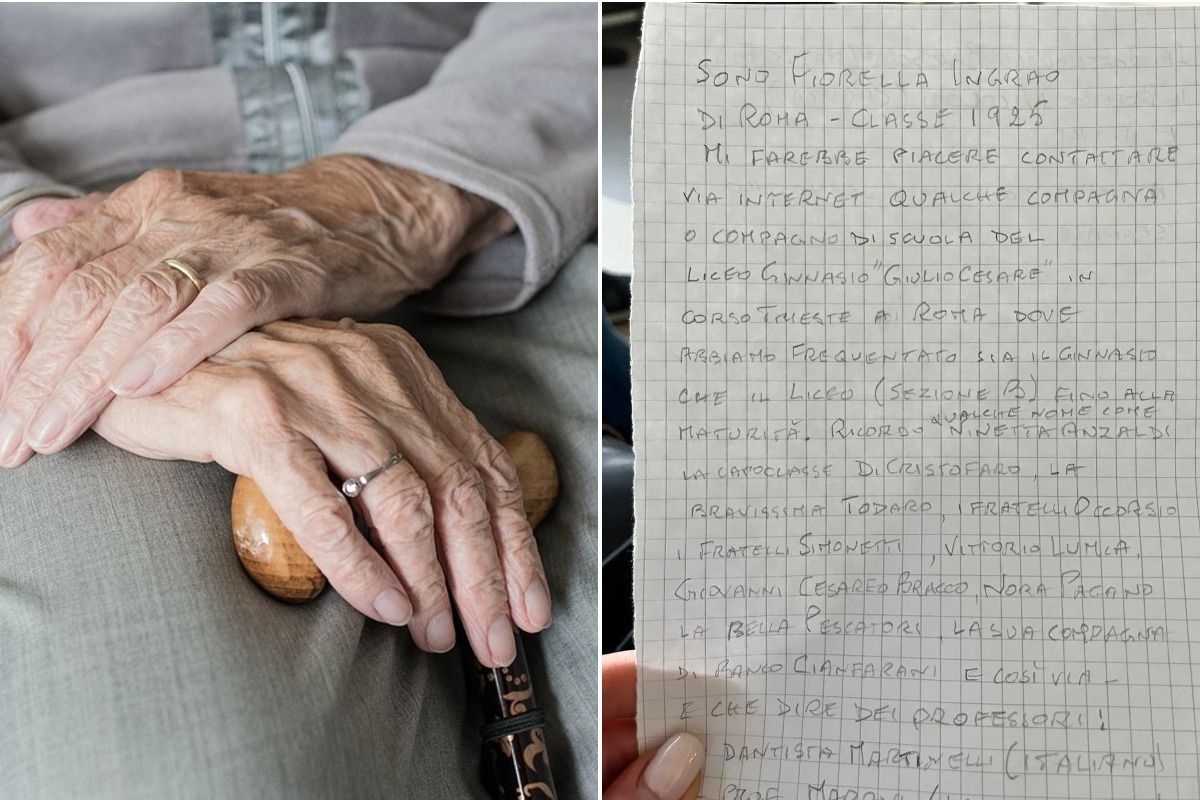 SONO FIORELLA INGRAO
DI ROMA - CLASSE 1925
MI FAREBBE PIACERE CONTATTARE
VIA INTERNET QUALCHE COMPAGNA
O COMPAGNO DI SCUOLA DEL
LICEO GINNASIO "GIULIO CESARE" IN
CORSO TRIESTE A ROMA DOVE
ABBIAMO FREQUENTATO SIA IL GINNASIO
CHE IL LICEO (SEZIONE B) FINO ALLA
MATURITÀ. RICORDO QUALCHE NOME COME NINETTA ANZALDI
LA CAPOCLASSE DI CRISTOFARO, LA
BRAVISSIMA TODARO, I FRATELLI OCCORSIO
I FRATELLI SIMONETTI, VITTORIO LUMIA,
GIOVANNI CESAREO BRACCO, NORA PAGANO
LA BELLA PESCATORI, LA SUA COMPAGNA
DI BANCO CIANFARANI E COSÌ VIA -
E CHE DIRE DEI PROFESSORI!
DANTISTA MARTINELLI (ITALIANO)
- PROF.